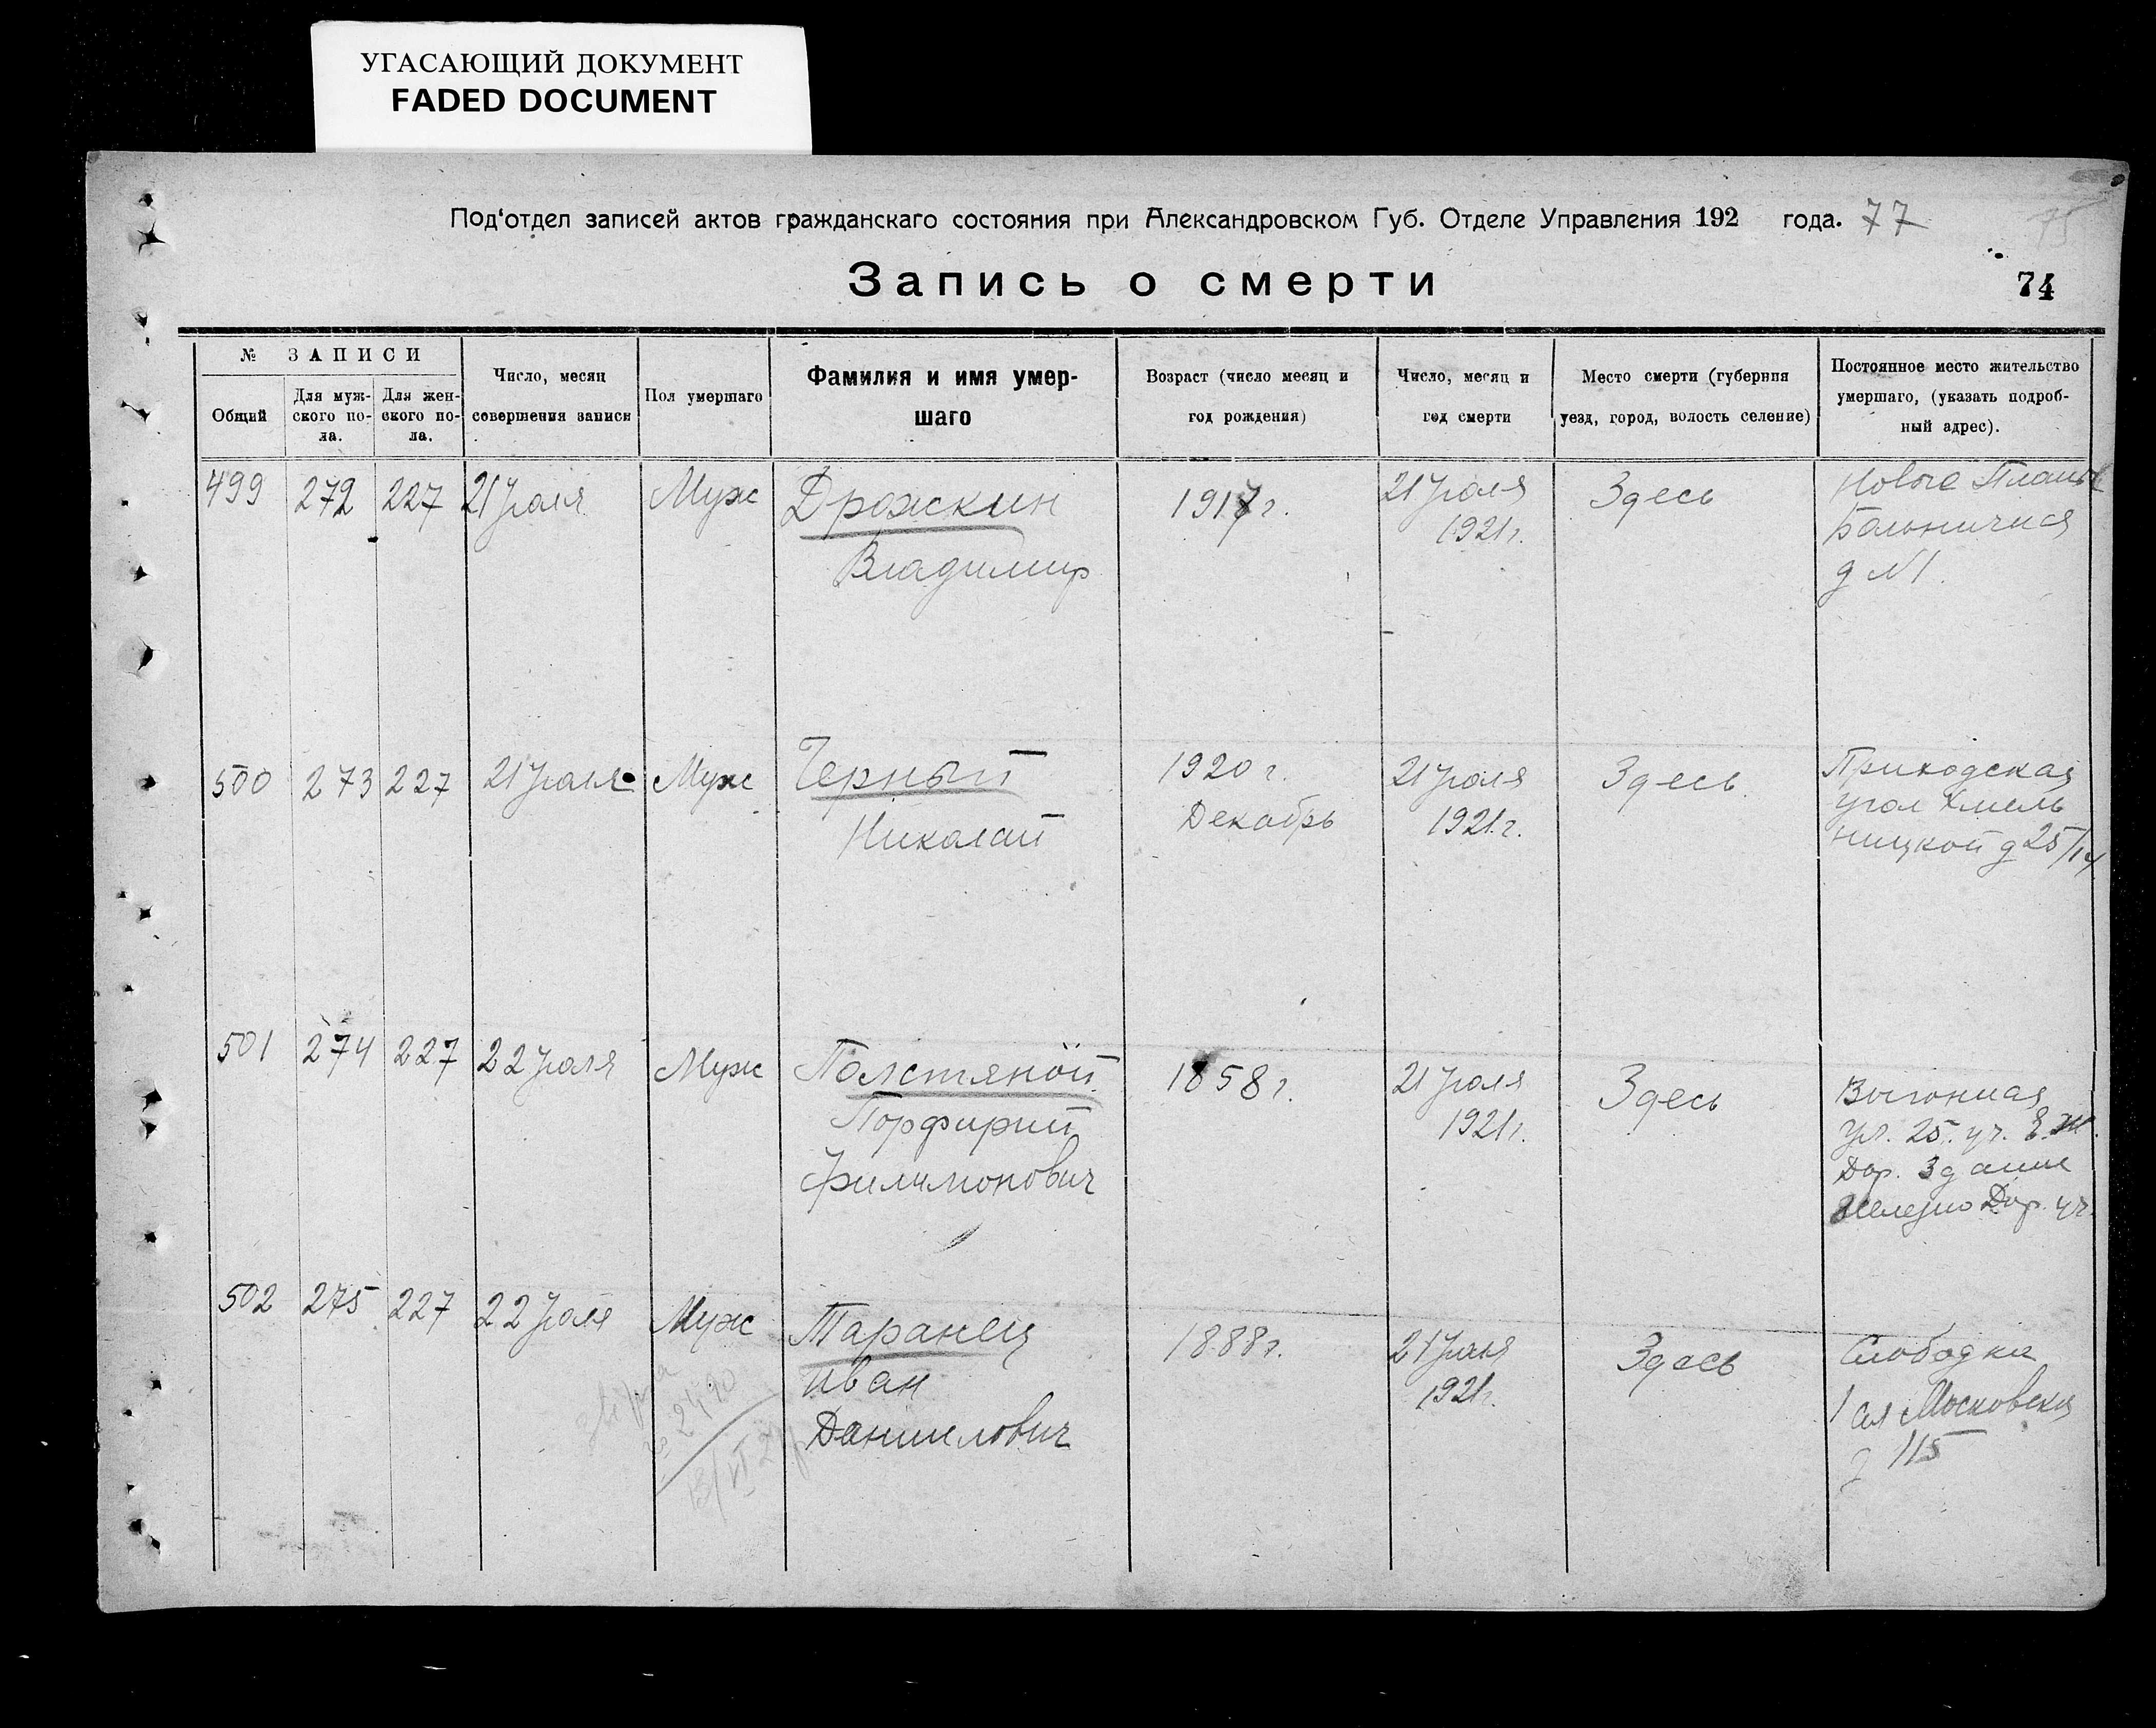 УГАСАЮЩИЙ ДОКУМЕНТ
FADED DOCUMENT
Под'отдел записей актов гражданскаго состояния при Александровском Губ. Отделе Управления 192 года. 77
75
Запись о смерти
74
№ ЗАПИСИ
Общий
Для муж-
ского по-
ла.
Для жен-
ского по-
ла.
Число, месяц
совершения записи
Пол умершаго
Фамилия и имя умер-
шаго
Возраст (число месяц и
год рождения)
Число, месяц и
год смерти
Место смерти (губерния
уезд, город, волость селение)
Постоянное место жительство
умершаго, (указать подроб-
ный адрес).
499 272 227 21 Июля Муж
Дрожкин
Владимир
1917 г.
21 Июля
1921 г.
Здесь
Новые Планы
Больничная
д №1.
500 273 227 21 Июля Муж
Черный
Николай
1920 г.
Декабрь
21 Июля
1921 г.
Здесь
Приходская
угол Хмель
ницкой д 25/14
501 274 227 22 Июля Муж
Полстяной
Порфирий
Филимонович
1858 г.
21 Июля
1921 г.
Здесь
Выгонная
ул. 25. уч. Е. Ж.
Дор. Здание
Железно Дор. уч.
502 275 227 22 Июля Муж
Таранец
Иван
Даниилович
1888 г.
21 Июля
1921 г.
Здесь
Слободка
Московская
115